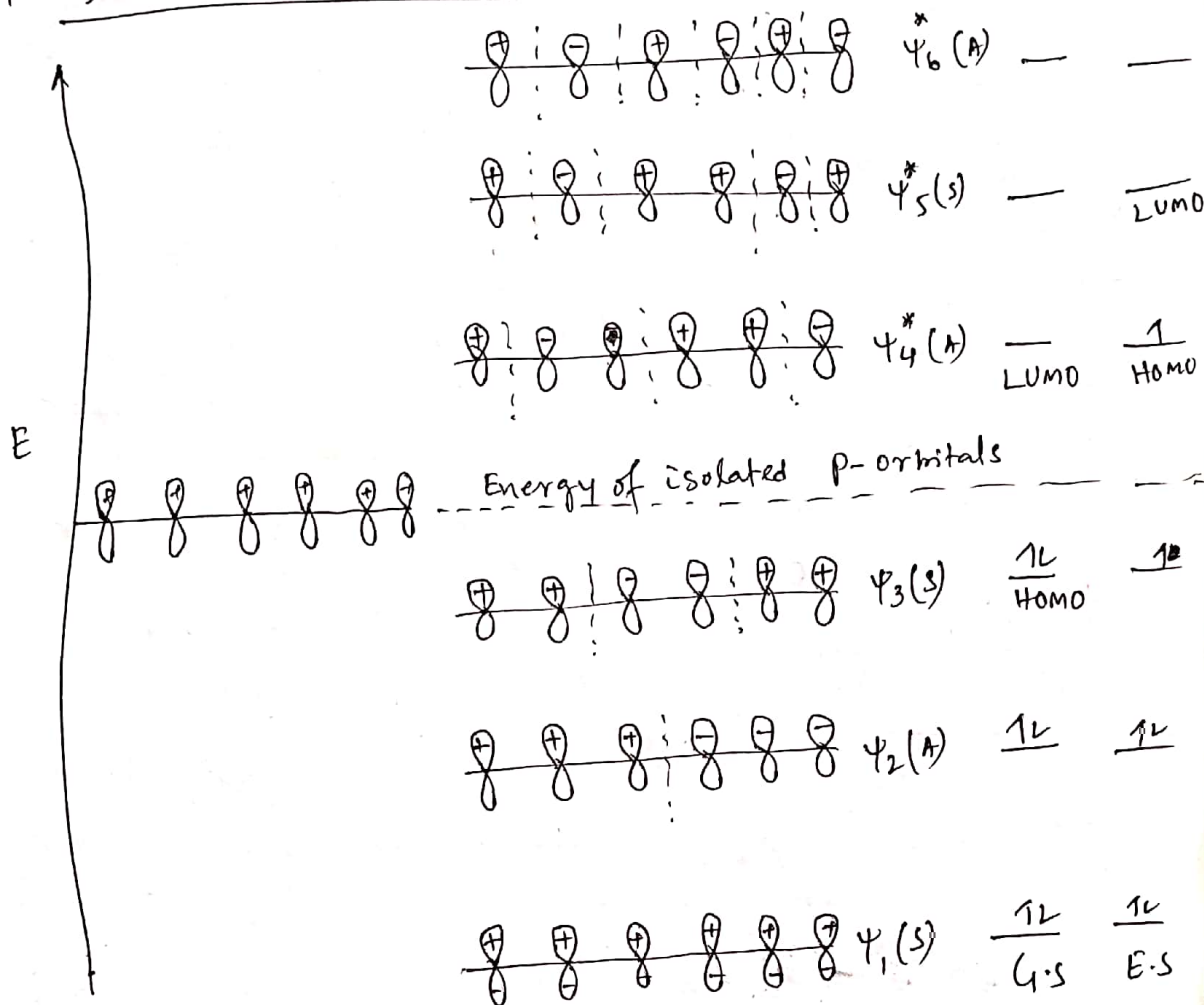 + - + - + - ψ*6 (A)
+ - + + - + ψ*5 (S)
LUMO
+ - + + - ψ*4 (A) 1
LUMO HOMO
E
Energy of isolated P-orbitals
+ + + + + +
+ + - - + + ψ3 (S) 1L 1
HOMO
+ + + - - - ψ2 (A) 1L 1L
+ + + + + + ψ1 (S) 1L 1L
- - - - - -
G.S E.S